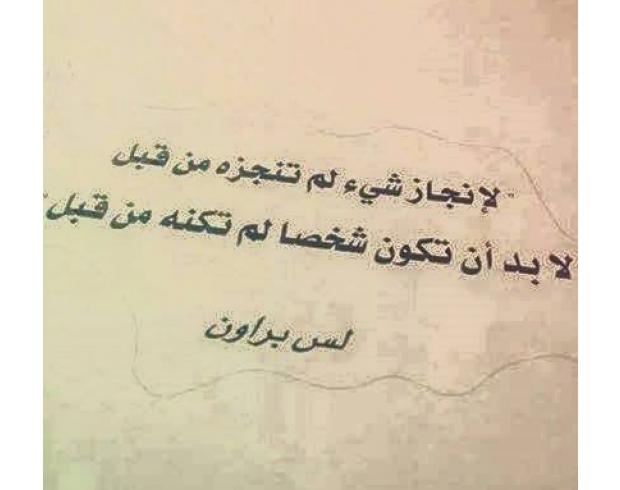 "لإنجاز شيء لم تنجزه من قبل
لا بد أن تكون شخصا لم تكنه من قبل"
لس براون